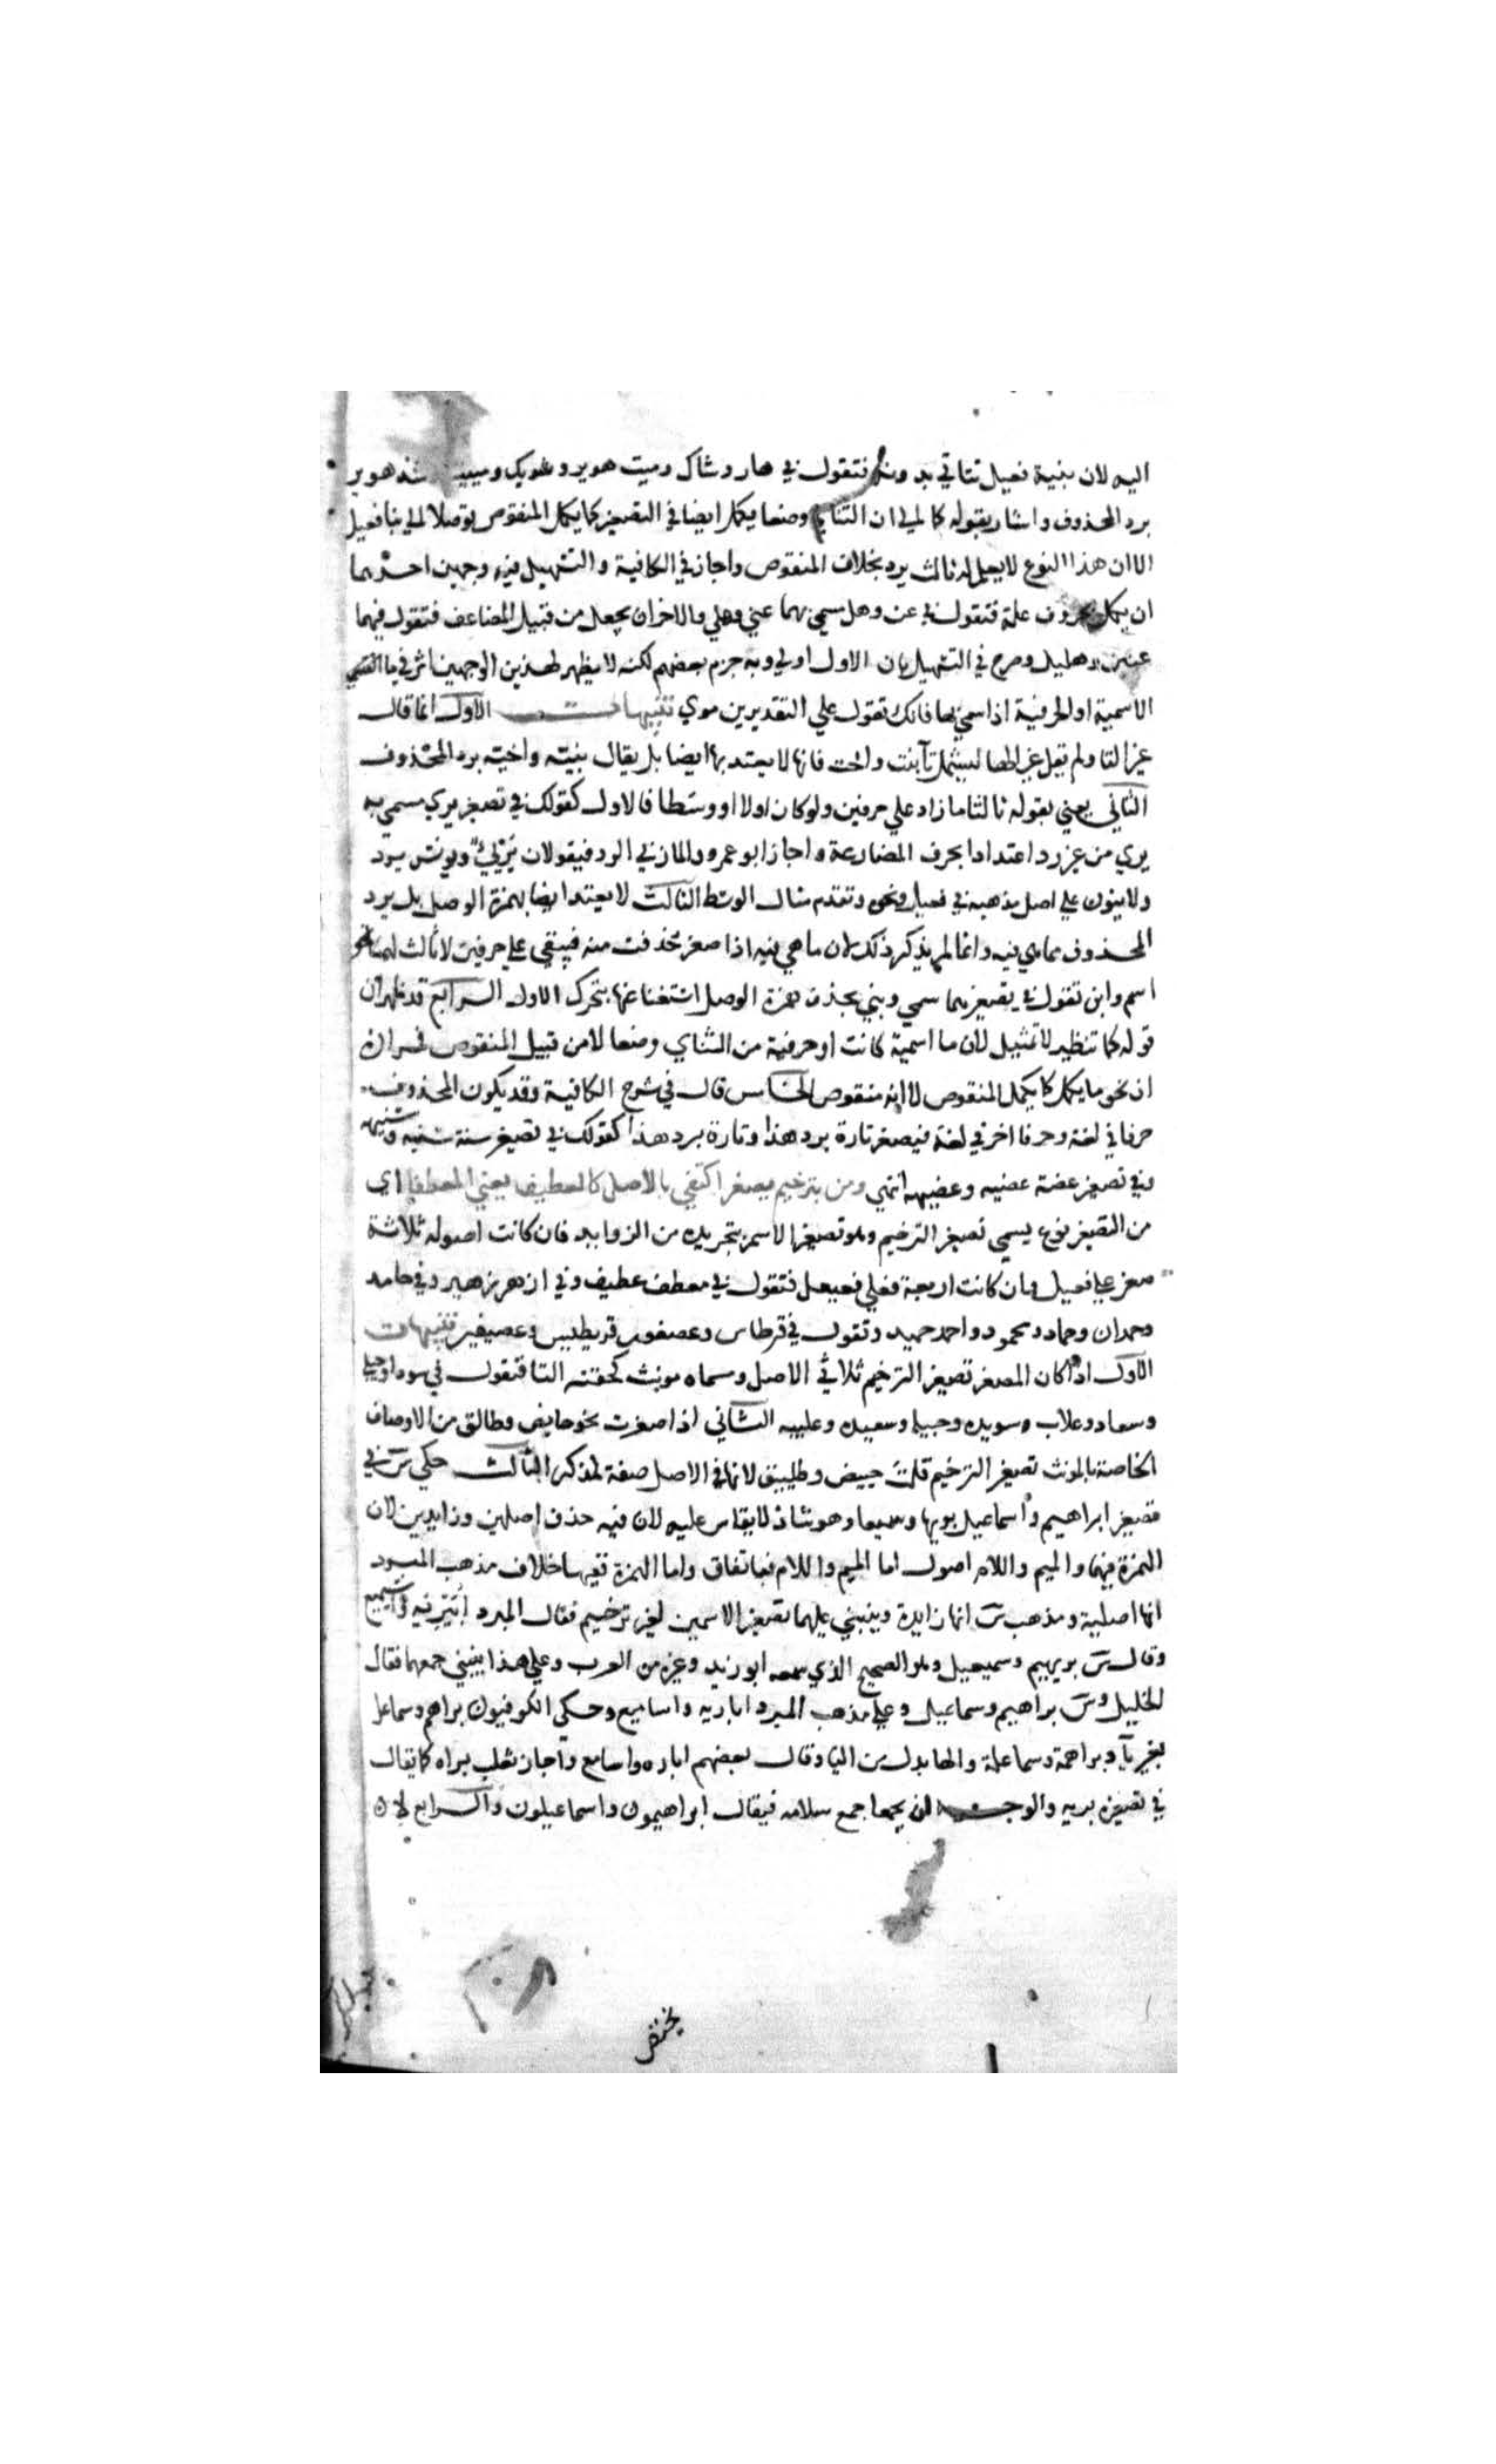 اليه لان بنية فعيل تتاتي بدونه فتقول في هار وشاك وميت هوير وشويك ومييت وشذ هوير
برد المحذوف واشار بقوله كما لي ان الثنايي وضعا يكمل ايضا في التصغير كما يكمل المنقوص توصلا الي بنا فعيل
الا ان هذا النوع لا يعلم له ثالث يرد بخلاف المنقوص واجاز في الكافية والتسهيل فيه وجهين احدهما
ان يكمل بحرف علة فتقول في عن وهل مسمي بهما عني وهلي والاخر ان يجعل من قبيل المضاعف فتقول فيهما
عنين وهليل وصرح في التسهيل بان الاول اولي وبه جزم بعضهم لكنه لا يظهر لهذين الوجهين اثر في ما
الاسمية او الحرفية اذا سمي بها فانك تقول علي التقديرين موي تنبيهات الاول انما قال
غير التا ولم يقل غير الها ليشمل تآ بنت واخت فانها لا يعتد بها ايضا بل يقال بنية واخية برد المحذوف
الثاني يعني بقوله ثالثا ما زاد علي حرفين ولو كان اولا او وسطا فالاول كقولك في تصغير يري مسمي به
يري من غير رد اعتدادا بحرف المضارعة واجاز ابو عمرو والمازني الرد فيقولان يريئ ويونس يرد
ولا ينون علي اصل مذهبه في فعيل ونحوه وتقدم مثال الوسط الثالث لا يعتد ايضا بهمزة الوصل بل يرد
المحذوف مما هي فيه وانما لم يذكر ذلك لان ما هي فيه اذا صغر حذفت منه فيبقي علي حرفين لا ثالث لهما نحو
اسم وابن تقول في تصغيرهما سمي وبني بحذف همزة الوصل استغنا عنها بتحرك الاول الرابع قد ظهر ان
قوله كما تنظير لا تمثيل لان ما اسمية كانت او حرفية من الثناي وضعا لا من قبيل المنقوص فمراده
ان نحو ما يكمل كما يكمل المنقوص لا انه منقوص الخامس قال في شرح الكافية وقد يكون المحذوف
حرفا في لغة وحرفا اخر في لغة فيصغر تارة برد هذا وتارة برد هذا كقولك في تصغير سنة سنيه وسنيهه
وفي تصغير عضة عضيه وعضيهه انتهي ومن بترخيم يصغر اكتفي بالاصل كالعطيف يعني المعطفا اي
من التصغير نوع يسمي تصغير الترخيم وهو تصغير الاسم بتجريده من الزوايد فان كانت اصوله ثلاثة
صغر علي فعيل وان كانت اربعة فعلي فعيعل فتقول في معطف عطيف وفي ازهر زهير وفي حامد
وحمدان وحماد ومحمود واحمد حميد وتقول في قرطاس وعصفور قريطيس وعصيفير تنبيهات
الاول اذا كان المصغر تصغير الترخيم ثلاثي الاصل ومسماه مونث لحقته التا فتقول في سودا وحبلي
وسعاد وغلاب سويده وحبيله وسعيده وغليبه الثاني اذا صغرت نحو حايض وطالق من الاوصاف
الخاصة بالمونث تصغير الترخيم قلت حييض وطليق لانها في الاصل صفة لمذكر الثالث حكي س في
تصغير ابراهيم واسماعيل بريها وسميعا وهو شاذ لا يقاس عليه لان فيه حذف اصلين وزايدين لان
الهمزة فيهما والميم واللام اصول اما الميم واللام فباتفاق واما الهمزة ففيها خلاف مذهب المبرد
انها اصلية ومذهب س انها زايدة وينبني عليهما تصغير الاسمين لغير ترخيم فقال المبرد ابيريه واسيميع
وقال س بريهيم وسميعيل وهو الصحيح الذي سمعه ابو زيد وغيره من العرب وعلي هذا ينبني جمعهما فقال
الخليل وس براهيم وسماعيل وعلي مذهب المبرد اباريه واساميع وحكي الكوفيون براهم وسماعل
بغير يآ وبراهمة وسماعلة والها بدل من اليا وقال بعضهم اباره واسامع واجاز ثعلب براه كما يقال
في تصغيره بريه والوجه ان يجمعا جمع سلامه فيقال ابراهيمون واسماعيلون والرابع لان
يختص